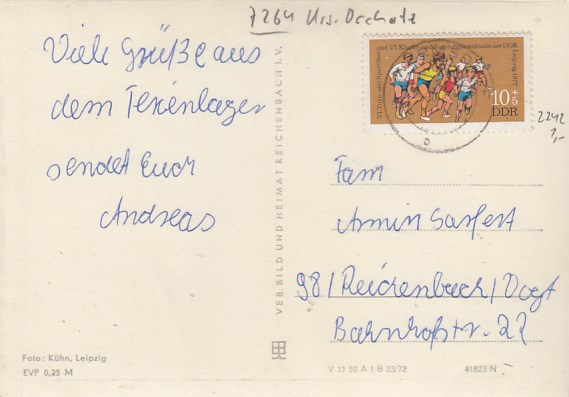 7264
Viele Grüße aus
dem Ferienlager
sendet Euch
Andreas
VEB BILD UND HEIMAT REICHENBACH I.V.
Foto: Kühn, Leipzig
EVP 0,25 M
VI. Turn- und Sportfest und VI. Kinder- und Jugendspartakiade der DDR Leipzig 1977
10+5
DDR
2242
Fam
Armin Sarfert
98/Reichenbach/Vogt
Bahnhofstr. 22
V 11 50 A 1/B 23/72
41823 N